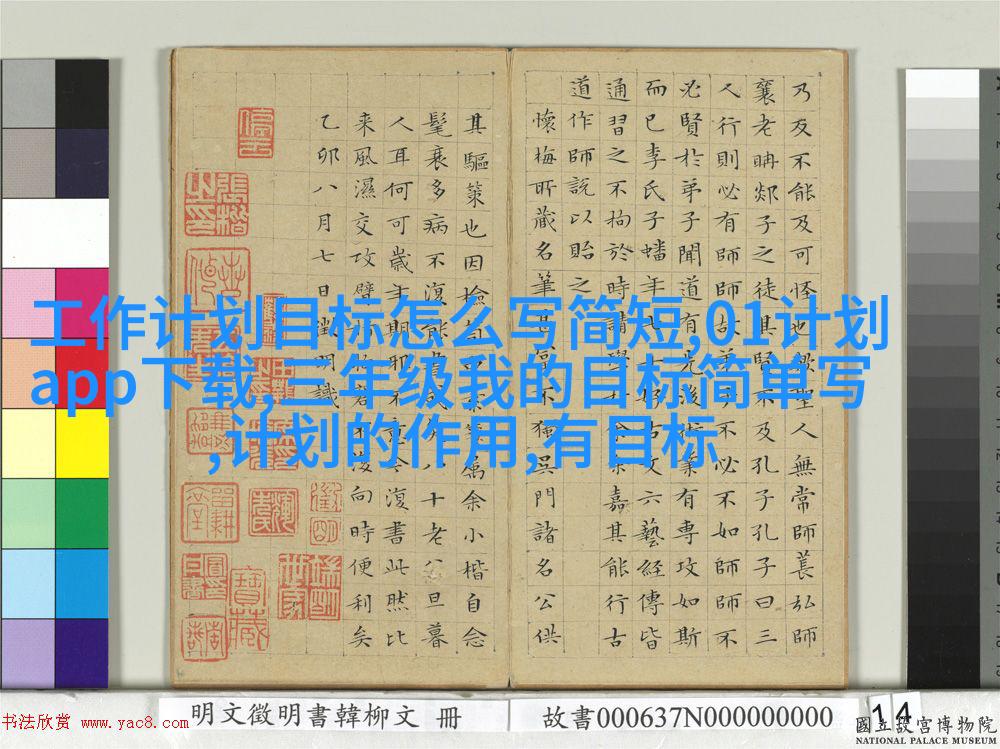 乃反不能及可怪也歟聖人無常師萇弘師
襄老聃郯子之徒其賢不及孔子孔子曰三
人行則必有師師故弟子不必不如師師不
必賢於弟子聞道有先後術業有專攻如斯
而已李氏子蟠年十七好古文六藝經傳皆
通習之不拘於時請學於余余嘉其能行古
道作師說以貽之
懷梅所藏名筆甚富不獨吳門諸名公供
其驅策也因撿 屬余小楷自念
髦衰多病不復能書 八十老公旦暮
人耳何可歲年期邪不意今復書此然比
来風濕交攻臂 向時便利矣
乙卯八月七日徵明識
工作计划目标怎么写简短,01计划
app下载,三年级我的目标简单写
,计划的作用,有目标
明文徵明書韓柳文 冊
故書000637N000000000
14
書法欣赏 www.yac8.com
國立故宮博物院
NATIONAL PALACE MUSEUM